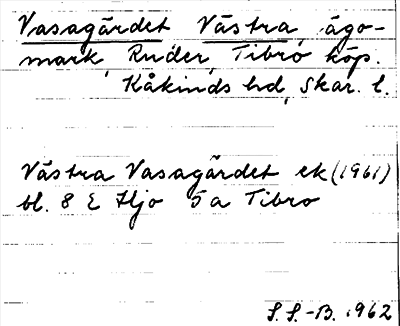 Vasagärdet Västra, ägo-
mark, Ruder, Tibro köp.
Kåkinds hd, Skar. l.
Västra Vasagärdet ek (1961)
bl. 8 E Hjo 5a Tibro
S. S.-B. 1962